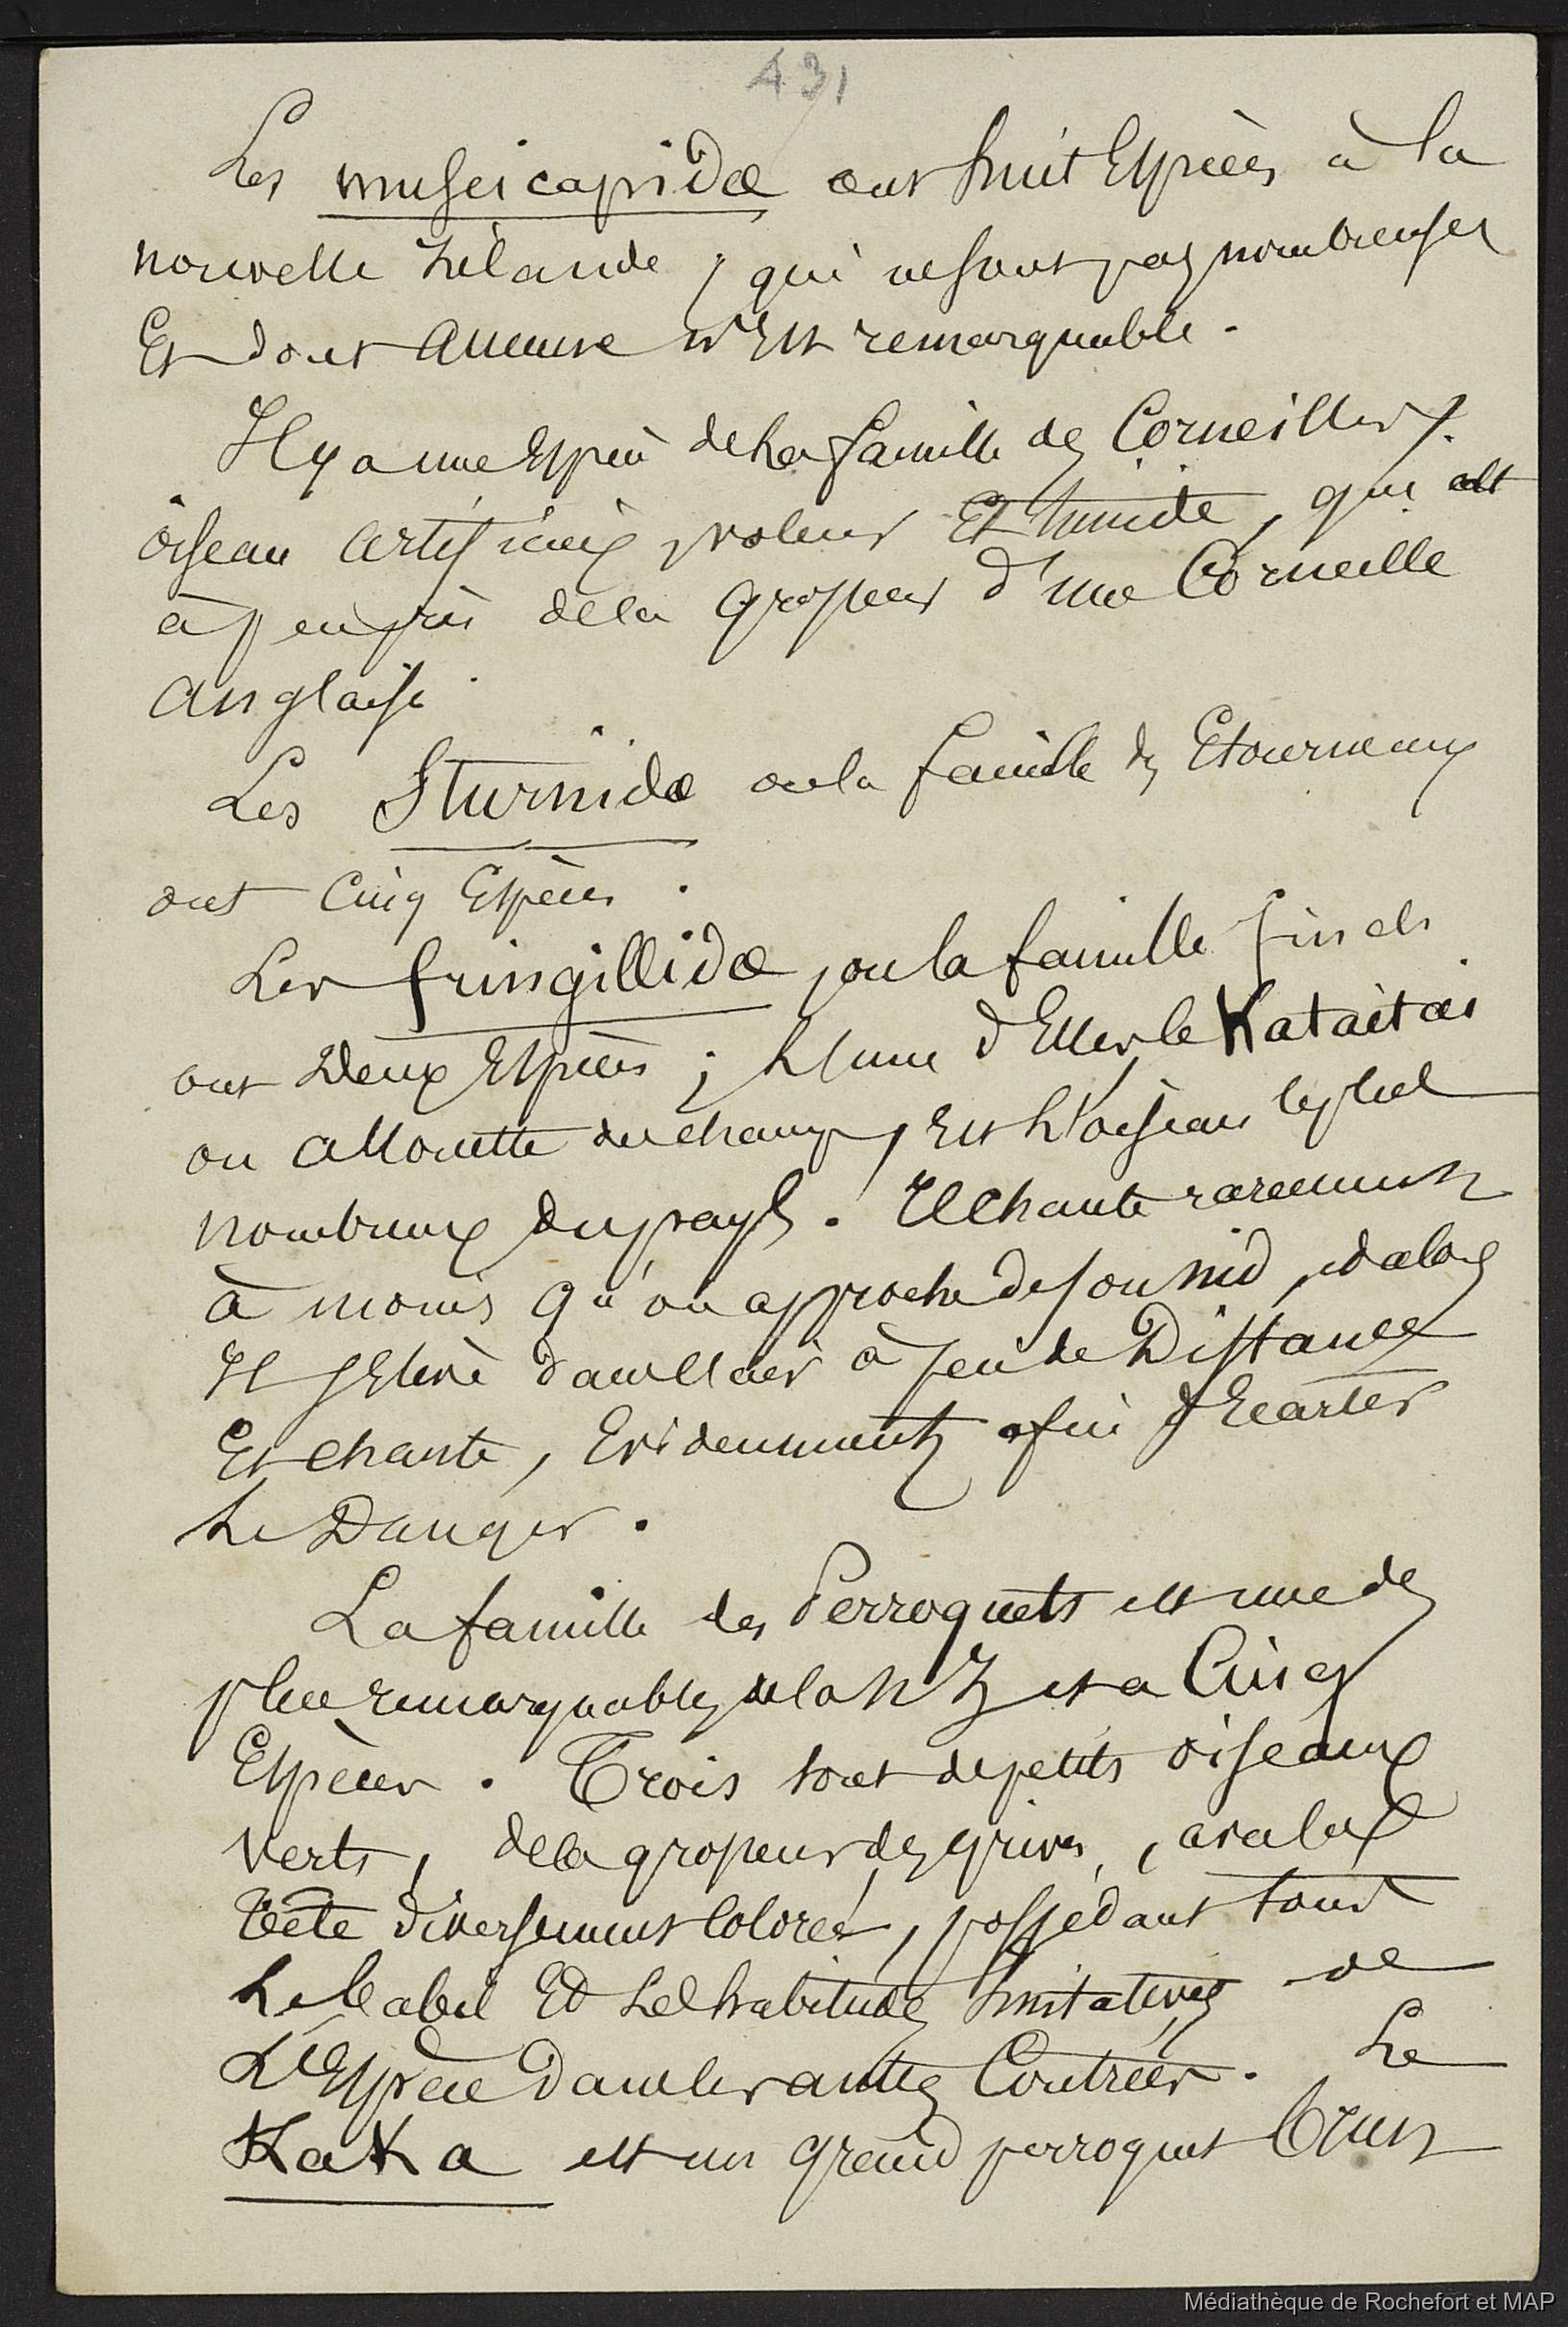 431
Les muscicapidæ ont huit Espèces à la
nouvelle Zélande, qui ne sont pas nombreuses
Et dont Aucune n'Est remarquable.
Il y a une Espèce de la famille des Corneilles,
oiseau Artificieux, voleur Et timide, qui est
à peu près de la grosseur d'une Corneille
Anglaise.
Les Sturnidæ ou la famille des Etourneaux
ont Cinq Espèces.
Les fringillidæ, ou la famille finch
ont Deux Espèces; L'une d'Elles, le Kataitai
ou allouette des champs, Est L'oiseau le plus
nombreux du pays. Il chante rarement
à moins qu'on approche de son nid, et alors
Il s'Elève dans l'air à peu de Distance
Et chante, Evidemment afin d'Ecarter
Le Danger.
La famille des Perroquets est une des
plus remarquables de la N Z et a Cinq
Espèces. Trois sont de petits oiseaux
verts, de la grosseur des grives, avec la
tête diversement Colorée, possédant tout
Le babil Et Les habitudes Imitatives de
L'Espèce dans les autres Contrées. Le
KaKa est un grand perroquet brun
Médiathèque de Rochefort et MAP